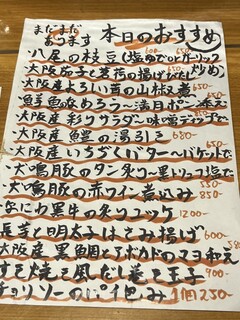 まだまだ
あります
本日のおすすめ
八尾の枝豆(塩ゆでorガーリック炒め)
600- 650-
大阪産茄子と若荷の揚げびたし
650-
大阪産よろい茸の山椒煮
650-
魚のなめろう〜満月ポン添え
大阪産 彩りサラダ 味噌ディップで
大阪産 鱧の湯引き 680-
大阪産いちぢくバター(バケットで
550-
犬鳴豚のタン炙り〜黒トリュフ塩で
550-
犬鳴豚の赤ワイン煮込み 850-
なにわ黒牛の炙りユッケ 1200-
長芋と明太子はさみ揚げ 600-
大阪産 黒鯛とアボカドのマヨ和え
すき焼き風だし巻き玉子 900-
チョリソーのパイ包み 1個250-